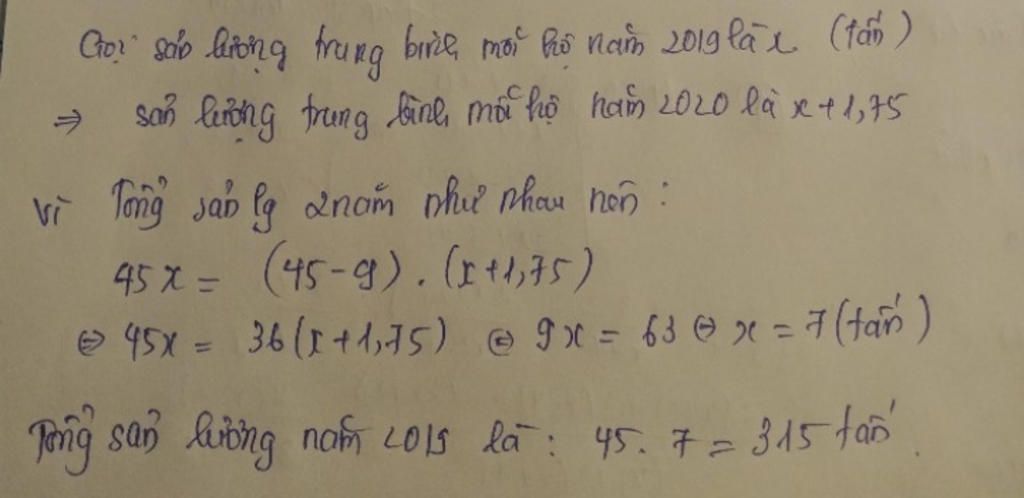 Gọi sản lượng trung bình mỗi hộ năm 2019 là x (tấn)
⇒ sản lượng trung bình mỗi hộ năm 2020 là x + 1,75
Vì Tổng sản lg 2 năm như nhau nên :
45x = (45 - 9) . (x + 1,75)
⇔ 45x = 36(x + 1,75) ⇔ 9x = 63 ⇔ x = 7 (tấn)
Tổng sản lượng năm 2019 là : 45 . 7 = 315 tấn.